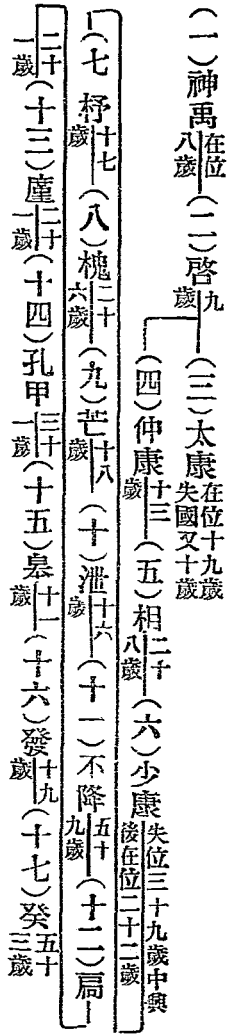 （一）神禹在位八歲（二）啓九歲（三）太康在位十九歲失國又十歲
（四）仲康十三歲（五）相二十八歲（六）少康失位三十九歲中興後在位二十二歲
（七）杼十七歲（八）槐二十六歲（九）芒十八歲（十）泄十六歲（十一）不降五十九歲（十二）扃
二十一歲（十三）廑二十一歲（十四）孔甲三十一歲（十五）皋十一歲（十六）發十九歲（十七）癸五十三歲